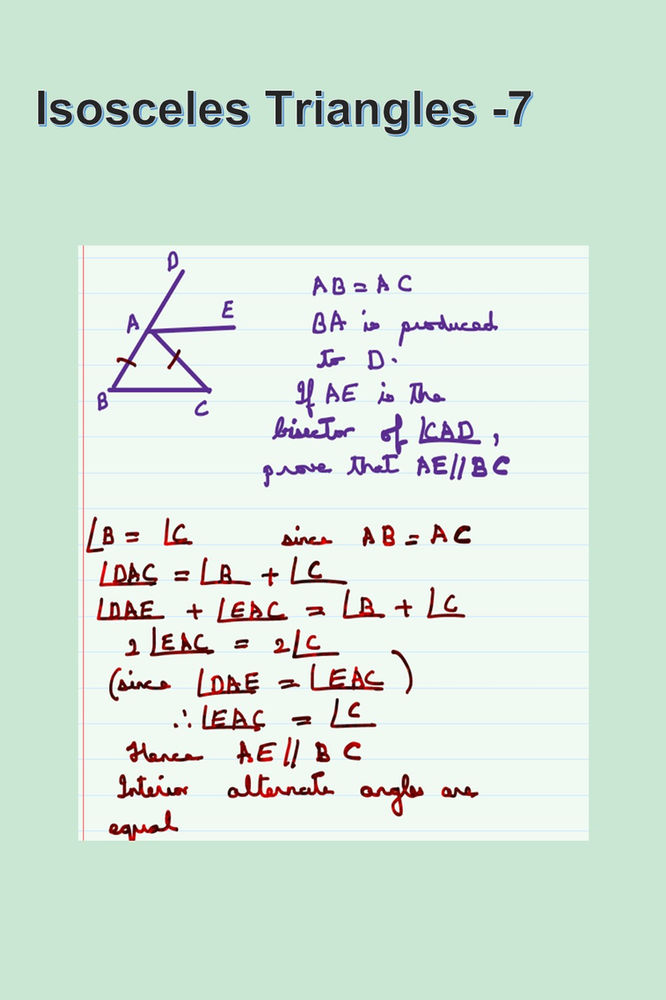 Isosceles Triangles -7
D
A
E
B
C
AB = AC
BA is produced
to D.
If AE is the
bisector of ∠CAD,
prove that AE//BC
∠B = ∠C since AB = AC
∠DAC = ∠B + ∠C
∠DAE + ∠EAC = ∠B + ∠C
2∠EAC = 2∠C
(since ∠DAE = ∠EAC)
∴ ∠EAC = ∠C
Hence AE // BC
Interior alternate angles are
equal